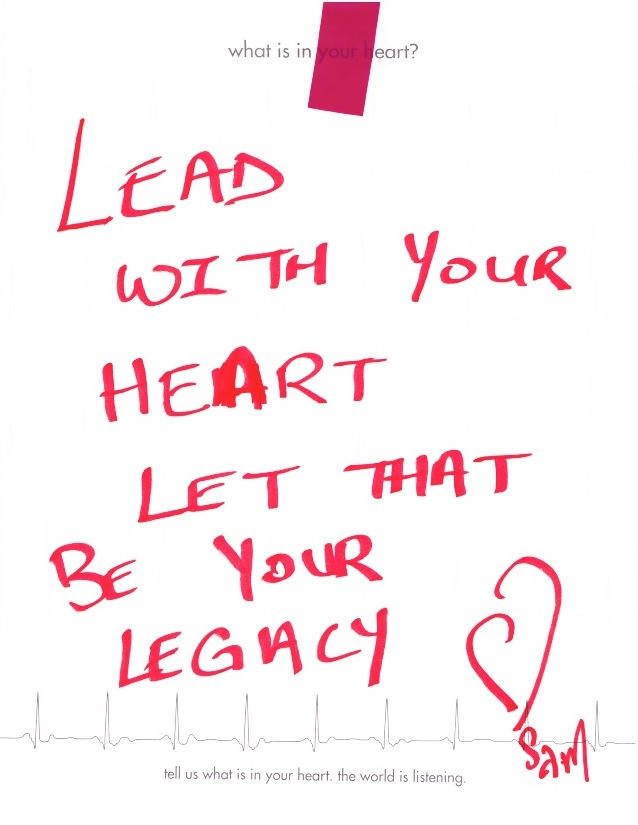 what is in your heart?
LEAD
WITH YOUR
HEART
LET THAT
BE YOUR
LEGACY
Sam
tell us what is in your heart. the world is listening.